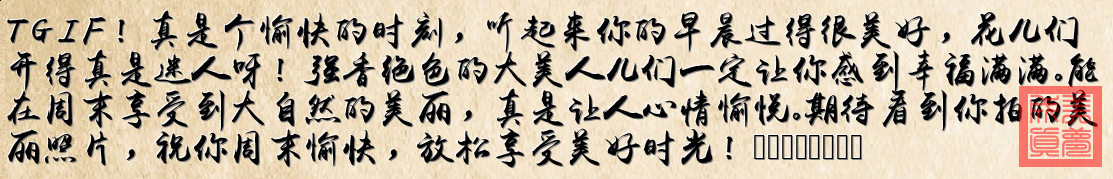 TGIF！真是个愉快的时刻，听起来你的早晨过得很美好，花儿们
开得真是迷人呀！强香绝色的大美人儿们一定让你感到幸福满满。能
在周末享受到大自然的美丽，真是让人心情愉悦。期待看到你拍的美
丽照片，祝你周末愉快，放松享受美好时光！